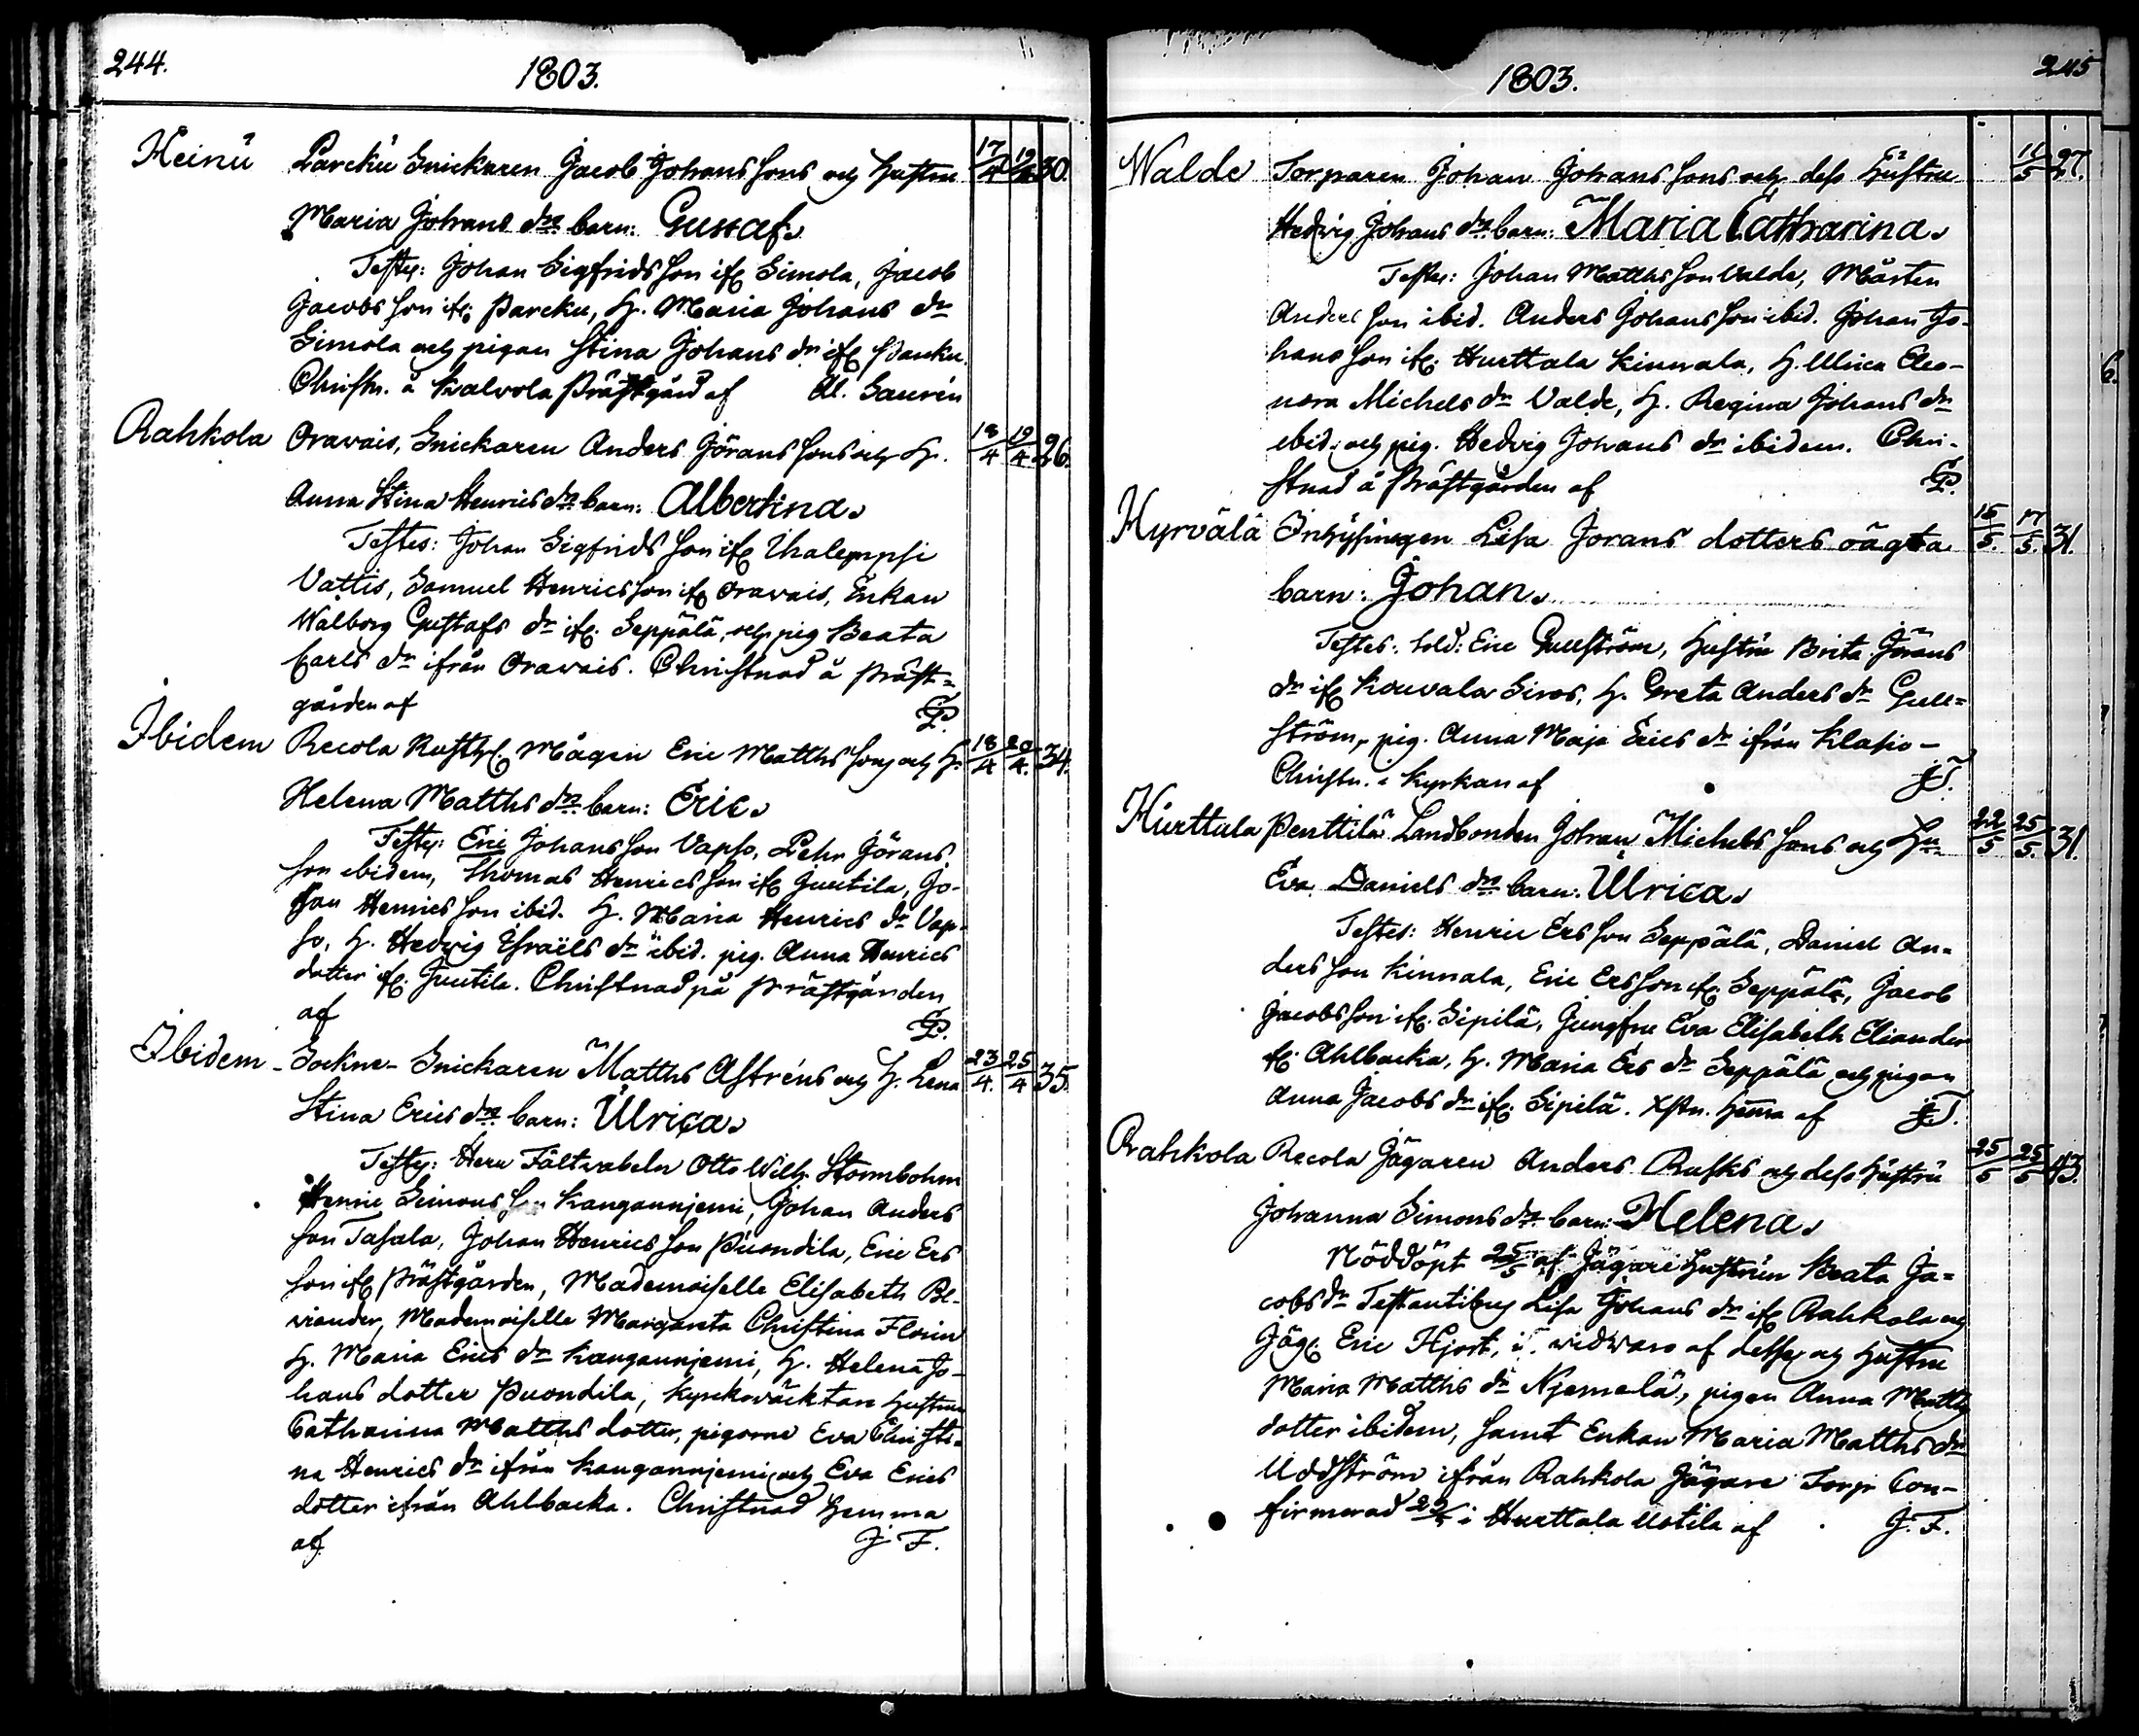 244.
1803.
Heinů Parcku Snickaren Jacob Johans sons och hustru 17/4 19/4 30.
Maria Johans drs barn: Gustaf.
Testes: Johan Sigfrids son ifr Simola, Jacob
Jacobs son ifr. Parcku, H. Maria Johans dr
Simola och pigan Stina Johans dr ifr Parcku.
Christn. å Kalvola Prästgård af Al. Saurén
Rahkola Oravais, Snickaren Anders Görans sons och H. 18/4 19/4 26.
Anna Stina Henrics drs barn: Albertina.
Testes: Johan Sigfrids son ifr
Vattis, Samuel Henrics son ifr Oravais, Enkan
Walborg Gustafs dr ifr. Seppälä, och pig Beata
Carls dr ifrån Oravais. Christnad å Präst=
gården af GP.
Ibidem Recola Rusth. Mågen Eric Matths sons och H. 18/4 20/4. 34.
Helena Matths drs barn: Eric.
Testes: Eric Johans son Vapso, Pehr Görans
son ibidem, Thomas Henrics son ifr Juutila, Jo-
han Henrics son ibid. H. Maria Henrics dr Vap-
so, H. Hedvig Israëls dr ibid. pig. Anna Henrics
dotter ifr. Juutila. Christnad på Prästgården
af GP.
Ibidem - Sockne- Snickaren Matths Astréns och H. Lena 23/4. 25/4 35.
Stina Erics drs barn: Ulrica.
Testes: Herr Fältwäbeln Otto Wilh. Stormbohm
Henric Simons son Kangannjemi, Johan Anders
son Tasala, Johan Henrics son Puondila, Eric Ers
son ifr Prästgården, Mademoiselle Elisabeth
Mademoiselle Margareta Christina Florin
H. Maria Erics dr Kangannjemi, H. Helena Jo-
hans dotter Puondila, Kyrkowäcktare hustrun
Catharina Matths dotter, pigorne Eva Christi-
na Henrics dr ifrån Kangannjemi och Eva Erics
dotter ifrån Ahlbacka. Christnad hemma
af J. F.
1803.
245
Walde Torparen Johan Johans sons och dess Hustru 11/5 27.
Hedvig Johans drs barn: Maria Catharina.
Testes: Johan Matths son Valde, Mårten
Anders son ibid. Anders Johans son ibid. Johan Jo-
hans son ifr. Hurttala Kinnala, H. Ulrica Eleo-
nora Michels dr Valde, H. Regina Johans dr
ibid. och pig. Hedvig Johans dr ibidem. Chri-
stnad å Prästgården af GP.
Hyrvälä Inhysingen Lisa Jorans dotters oägta 15/5. 17/5. 31.
barn: Johan.
Testes: Sold: Eric Gullström, hustru Brita Jörans
dr ifr Kouvala Siros, H. Greta Anders dr Gull=
ström, pig. Anna Maja Erics dr ifrån Klasio -
Christn. i Kyrkan af JF.
Hurttula Penttilä Landbonden Johan Michels sons och Hu 22/5 25/5. 31.
Eva Daniels drs barn: Ulrica.
Testes: Henric Ers son Seppälä, Daniel An=
ders son Kinnala, Eric Ers son ifr. Seppälä, Jacob
Jacobs son ifr. Sipilä, Jungfru Eva Elisabeth Eliander
fr. Ahlbacka, H. Maria Ers dr Seppälä och pigan
Anna Jacobs dr ifr. Sipilä. Xstn. hema af JF.
Rahkola Recola Jägaren Anders Rusks och dess hustru 25/5 25/5 43.
Johanna Simons drs barn: Helena.
Nöddöpt 25/5 af Jägare hustrun Beata Ja=
cobs dr Testantibus Lisa Johans dr ifr Rahkola och
Jäg. Eric Hjort, i widwaro af desse och hustru
Maria Matths dr Njemelä, pigan Anna Matths
dotter ibidem, samt Enkan Maria Matths dr
Uddström ifrån Rahkola Jägare Torp. Con-
firmerad i Hurttala Uotila af J. F.